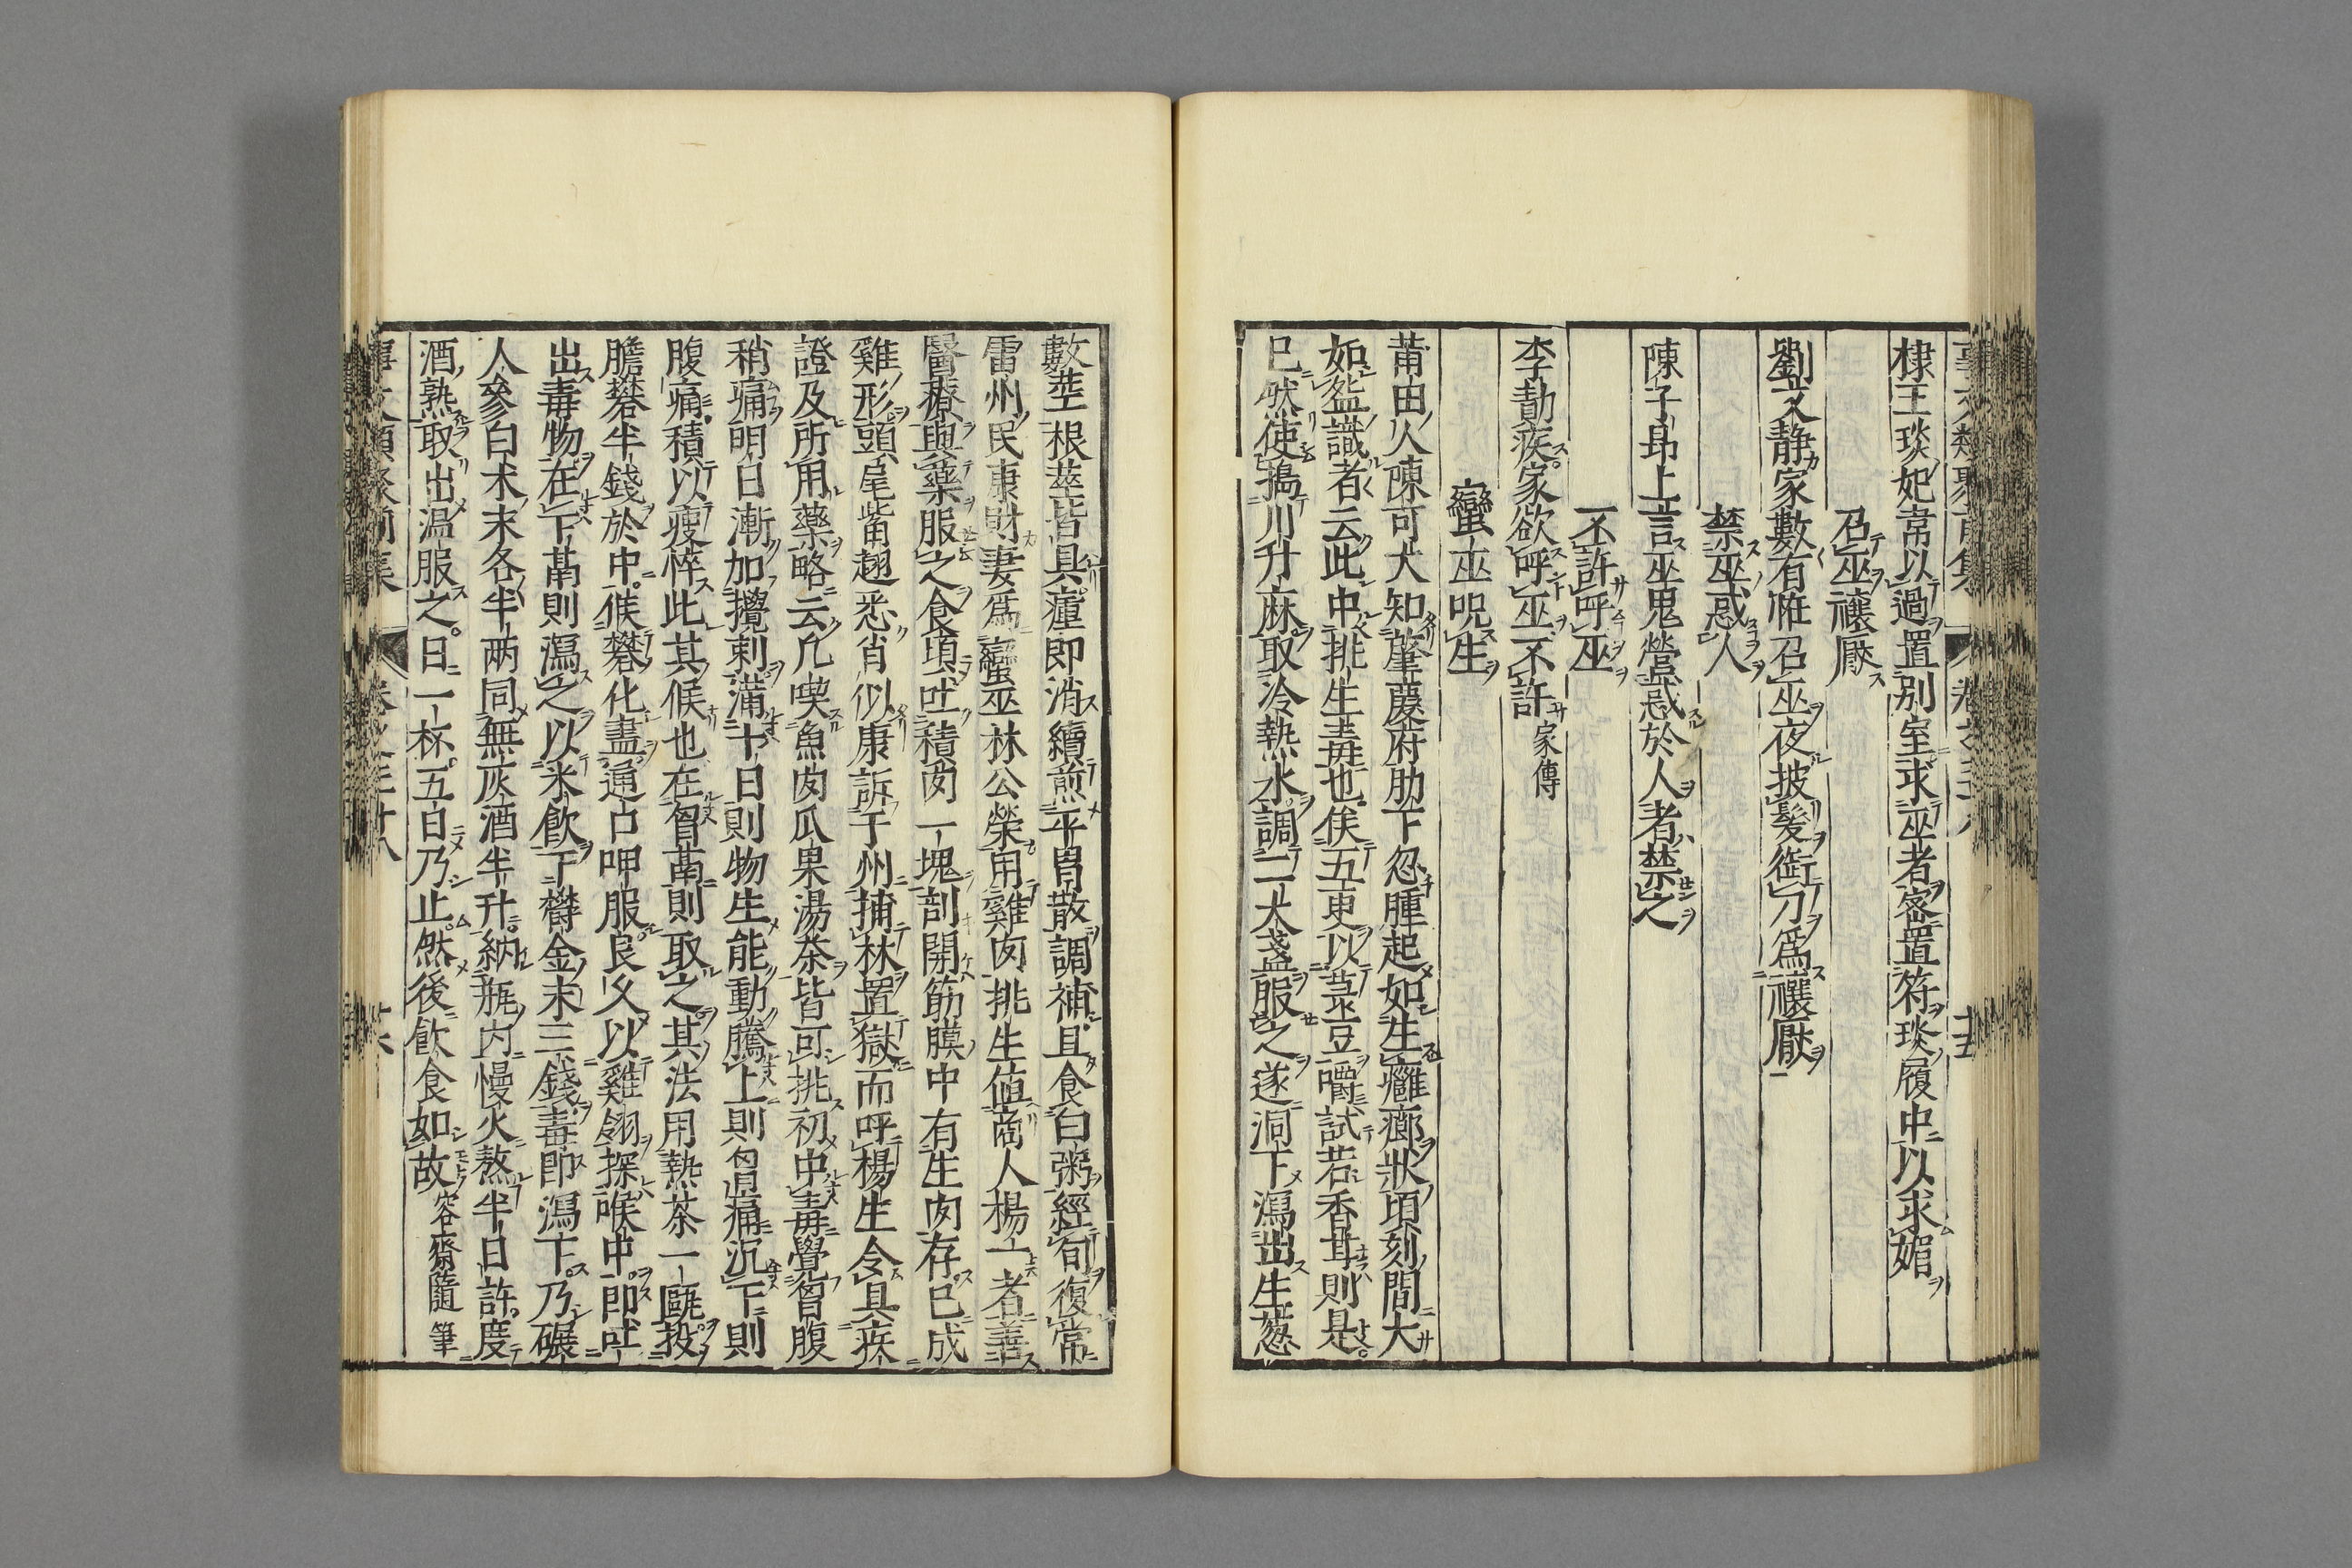 棣王琰妃常以過置別室求巫者密置符琰履中以求媚
召巫禳厭
劉文靜家數有恠召巫夜披髮銜刀爲禳厭
禁巫惑人
陳子昻上言巫鬼營惑於人者禁之
不許呼巫
李勣疾家欲呼巫不許家傳
蠻巫呪生
莆田人陳可大知肇慶府肋下忽腫起如生癰癤狀頃刻間大
如盌識者云此中挑生毒也俟五更以菉豆嚼試若香甘則是
已然使擣川升麻取冷熱水調二大盞服之遂洞下瀉出生葱
數莖根莖皆具瘇即消續煎平胃散調補且食白粥經旬復常
雷州民康財妻爲蠻巫林公榮用雞肉挑生値商人楊一者善
醫療與藥服之食頃吐積肉一塊剖開筋膜中有生肉存已成
雞形頭尾觜翅悉肖似康訴于州捕林置獄而呼楊生令具疾
證及所用藥略云凡喫魚肉瓜果湯茶皆可挑初中毒覺胷腹
稍痛明日漸加攪刺滿十日則物生能動騰上則胷痛沉下則
腹痛積以瘦悴此其候也在胷鬲則取之其法用熱茶一甌投
膽礬半錢於中候礬化盡通口呷服良久以雞翎探喉中即吐
出毒物在下鬲則瀉之以米飮下欝金末三錢毒即瀉下乃碾
人參白木末各半兩同無灰酒半升納瓶内慢火熬半日許度
酒熟取出温服之日一杯五日乃止然後飮食如故容齋隨筆